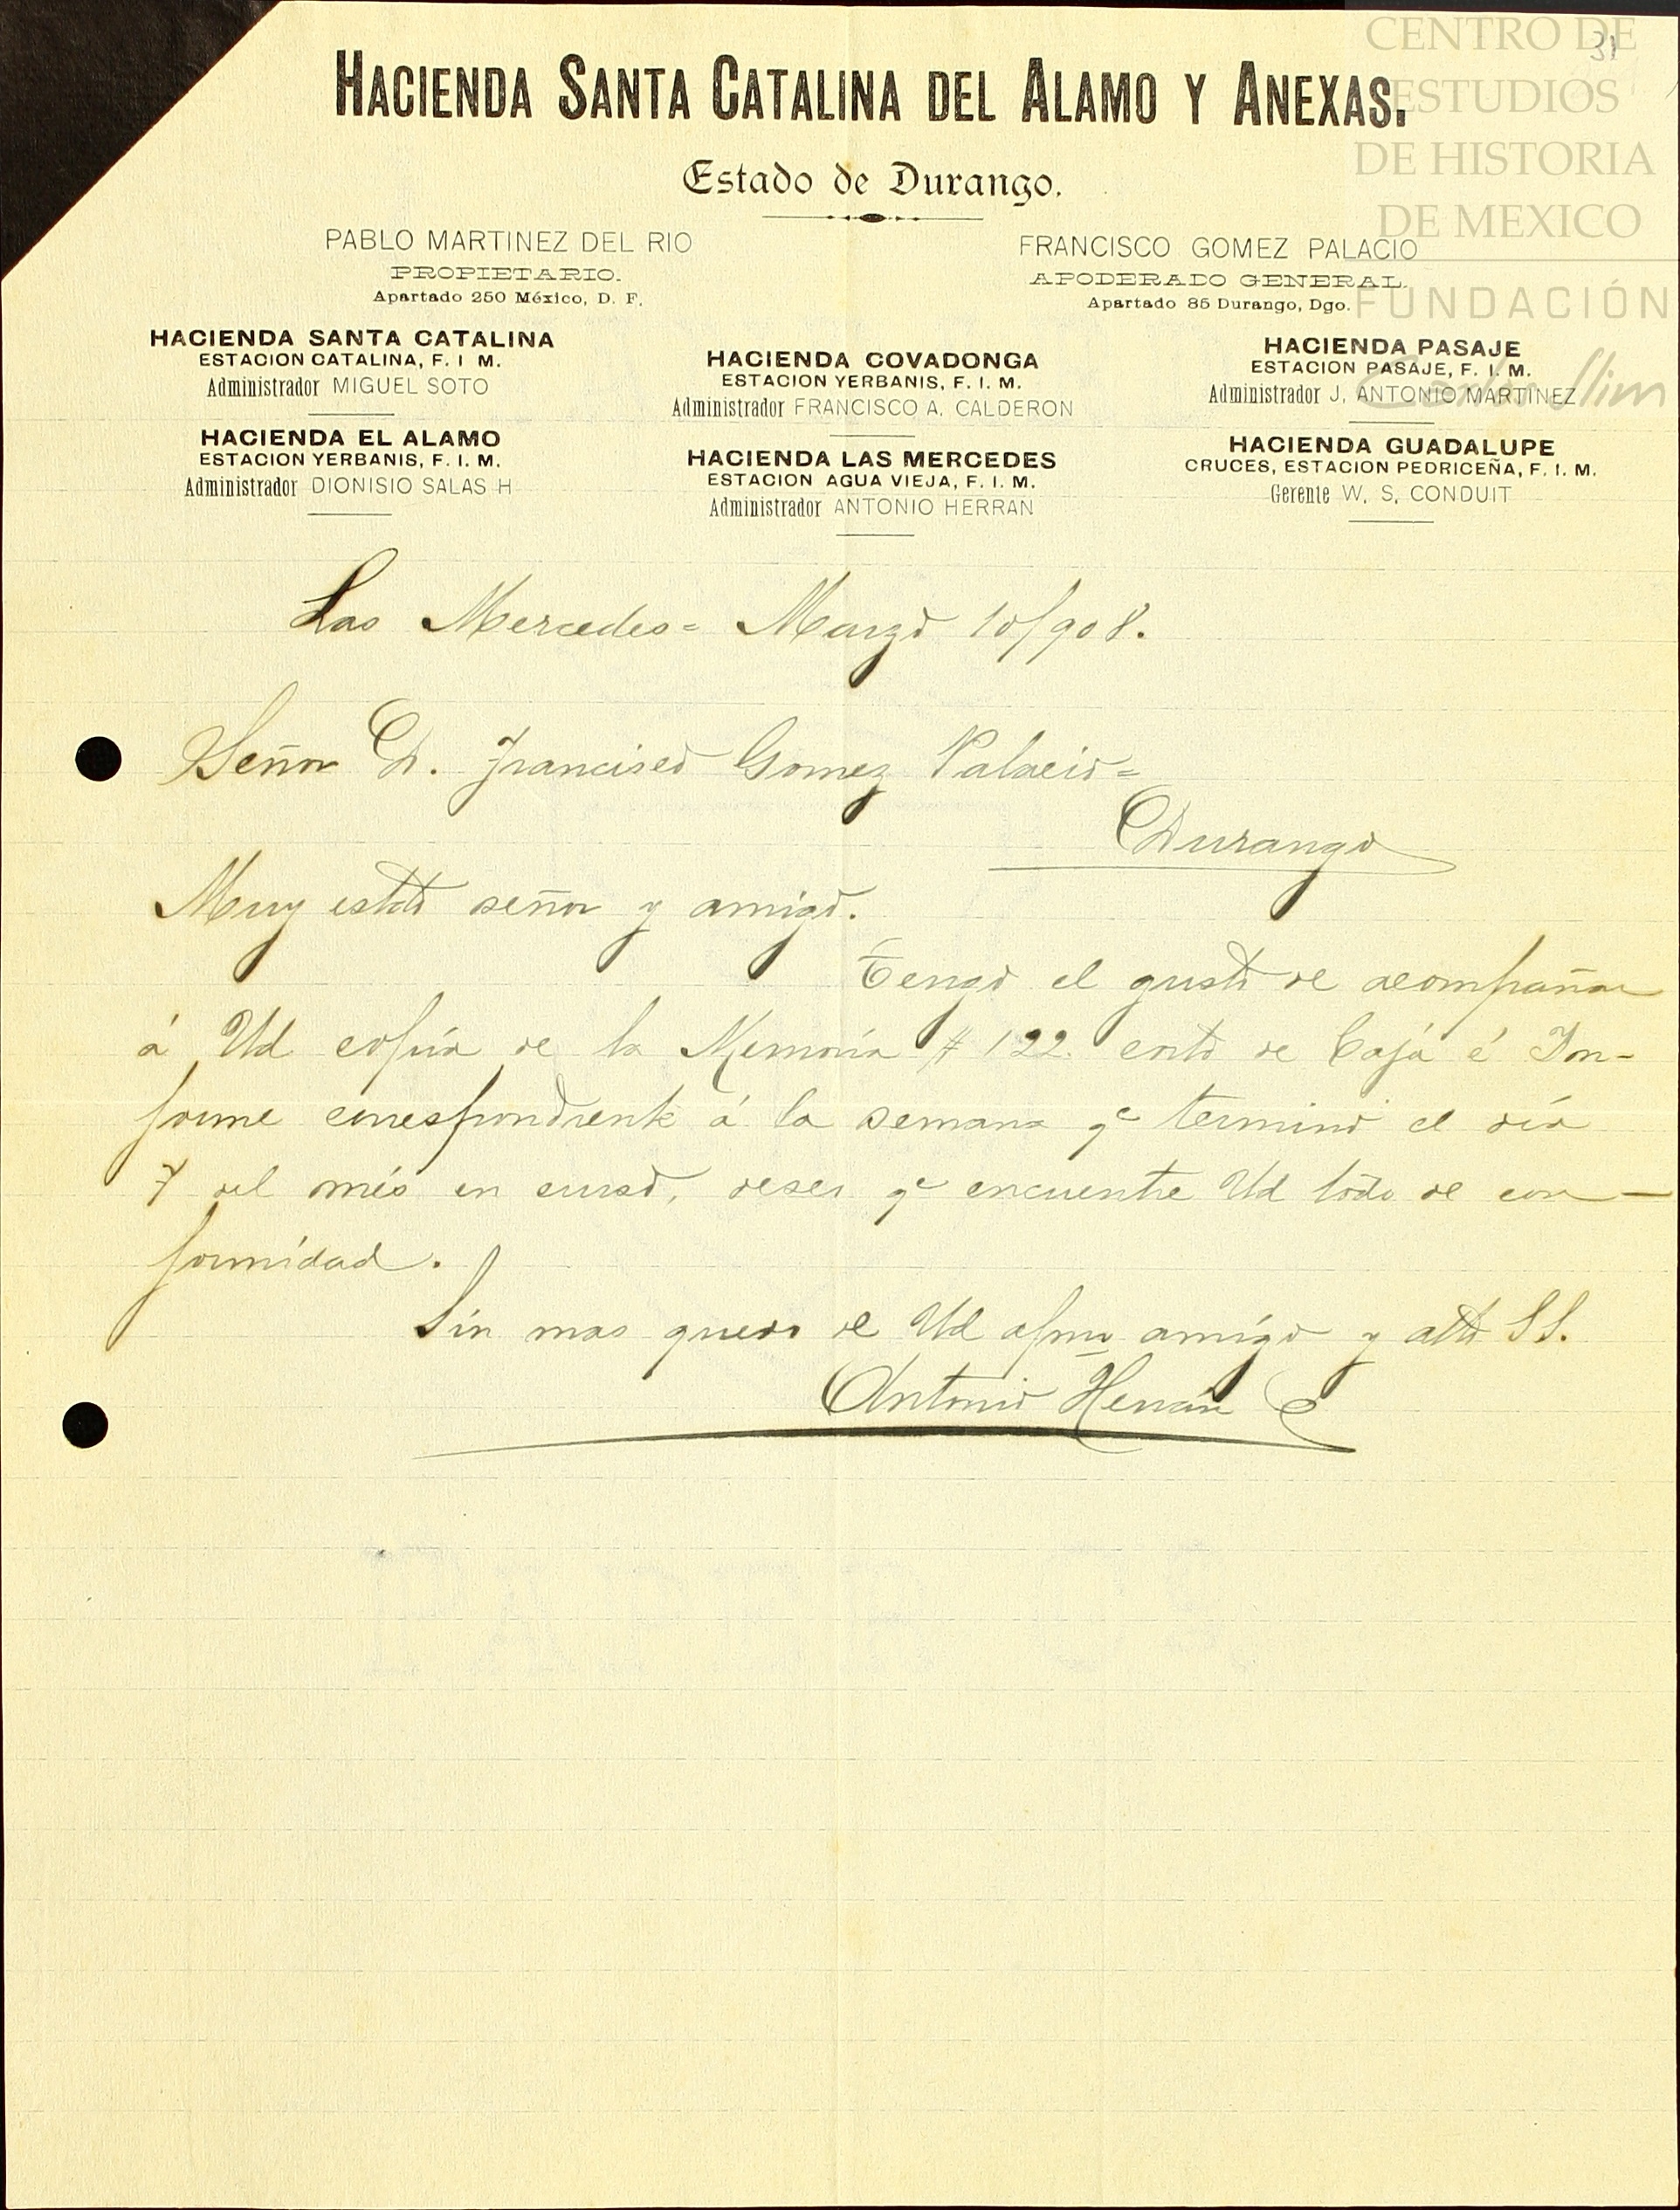 31
CENTRO DE
ESTUDIOS
DE HISTORIA
DE MEXICO
FUNDACIÓN
Carlos Slim
HACIENDA SANTA CATALINA DEL ALAMO Y ANEXAS.
Estado de Durango.
PABLO MARTINEZ DEL RIO
PROPIETARIO.
Apartado 250 México, D. F.
FRANCISCO GOMEZ PALACIO
APODERADO GENERAL.
Apartado 85 Durango, Dgo.
HACIENDA SANTA CATALINA
ESTACION CATALINA, F. I M.
Administrador MIGUEL SOTO
HACIENDA EL ALAMO
ESTACION YERBANIS, F. I. M.
Administrador DIONISIO SALAS H
HACIENDA COVADONGA
ESTACION YERBANIS, F. I. M.
Administrador FRANCISCO A. CALDERON
HACIENDA LAS MERCEDES
ESTACION AGUA VIEJA, F. I. M.
Administrador ANTONIO HERRAN
HACIENDA PASAJE
ESTACION PASAJE, F. I. M.
Administrador J. ANTONIO MARTINEZ
HACIENDA GUADALUPE
CRUCES, ESTACION PEDRICEÑA, F. I. M.
Gerente W. S. CONDUIT
Las Mercedes= Marzo 10/908.
Señor D. Francisco Gomez Palacio=
Durango
Muy estdo señor y amigo.
Tengo el gusto de acompañar
á Ud copia de la Memoria # 122. corte de Caja é In-
forme correspondiente á la semana qe terminó el día
7 del més en curso, deseo qe encuentre Ud todo de con-
formidad.
Sin mas quedo de Ud afmo amigo y atto SS.
Antonio Herrán